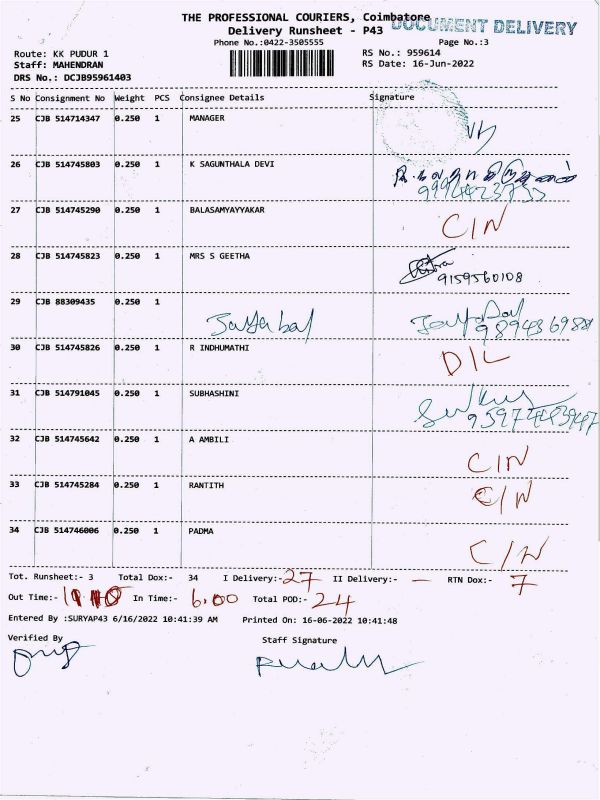 THE PROFESSIONAL COURIERS, Coimbatore
DOCUMENT DELIVERY
Delivery Runsheet - P43
Phone No.:0422-3505555 Page No.:3
Route: KK PUDUR 1 RS No.: 959614
Staff: MAHENDRAN RS Date: 16-Jun-2022
DRS No.: DCJB95961403
S No Consignment No Weight PCS Consignee Details Signature
25 CJB 514714347 0.250 1 MANAGER
26 CJB 514745803 0.250 1 K SAGUNTHALA DEVI
27 CJB 514745290 0.250 1 BALASAMYAYYAKAR C/N
28 CJB 514745823 0.250 1 MRS S GEETHA
9159560108
29 CJB 88309435 0.250 1
30 CJB 514745826 0.250 1 R INDHUMATHI D/L
31 CJB 514791045 0.250 1 SUBHASHINI
32 CJB 514745642 0.250 1 A AMBILI C/N
33 CJB 514745284 0.250 1 RANTITH C/N
34 CJB 514746006 0.250 1 PADMA C/N
Tot. Runsheet:- 3 Total Dox:- 34 I Delivery:- 27 II Delivery:- — RTN Dox:- 7
Out Time:- In Time:- 6.00 Total POD:- 24
Entered By :SURYAP43 6/16/2022 10:41:39 AM Printed On: 16-06-2022 10:41:48
Verified By Staff Signature